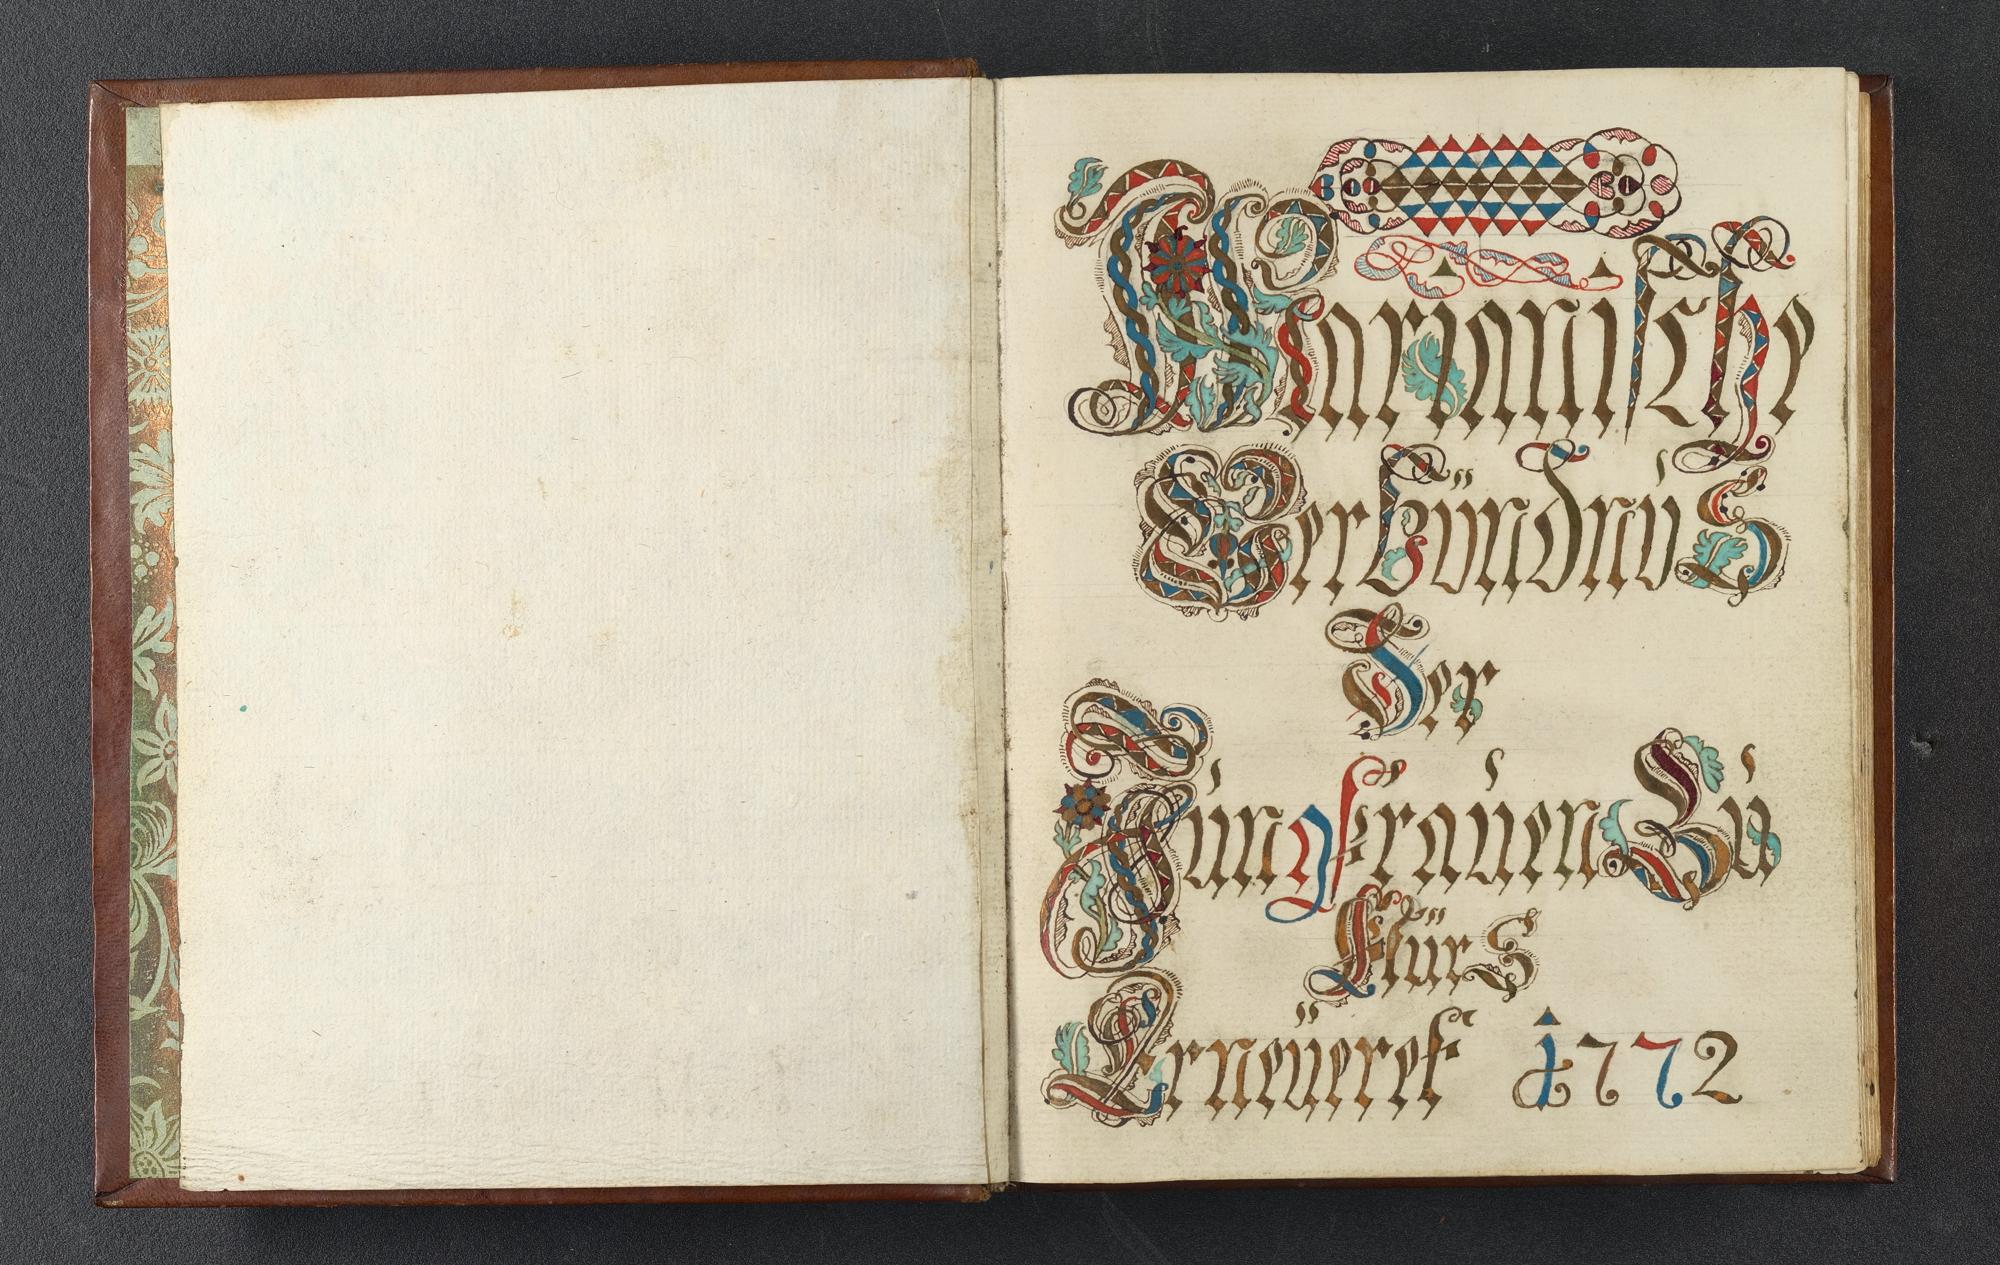 Marianische
Verbündnus
Der
Jungfrauen Zu
Erneüeret 1772